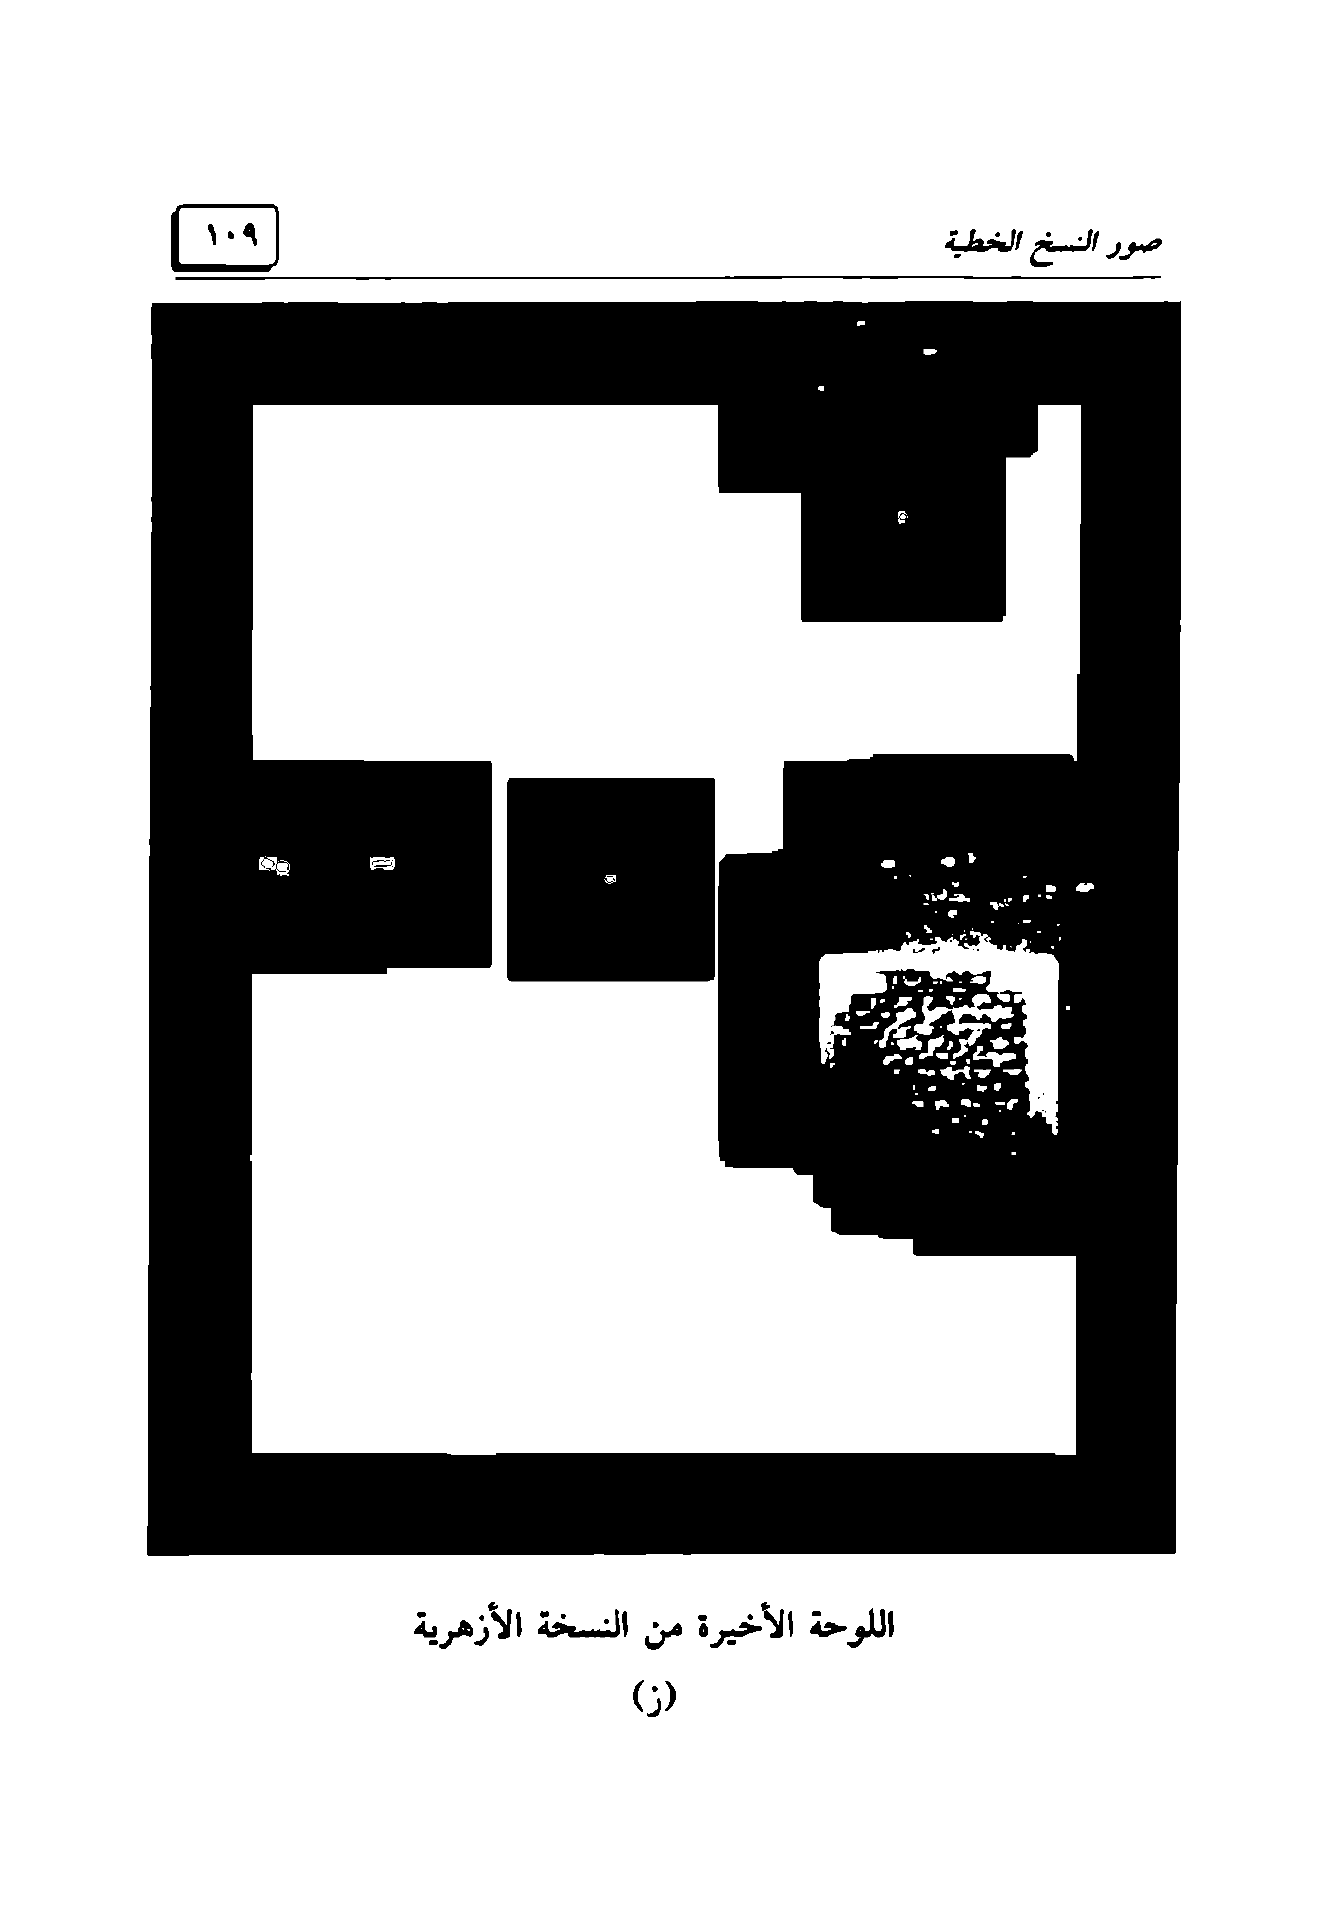 صور النسخ الخطية
١٠٩
اللوحة الأخيرة من النسخة الأزهرية
(ز)